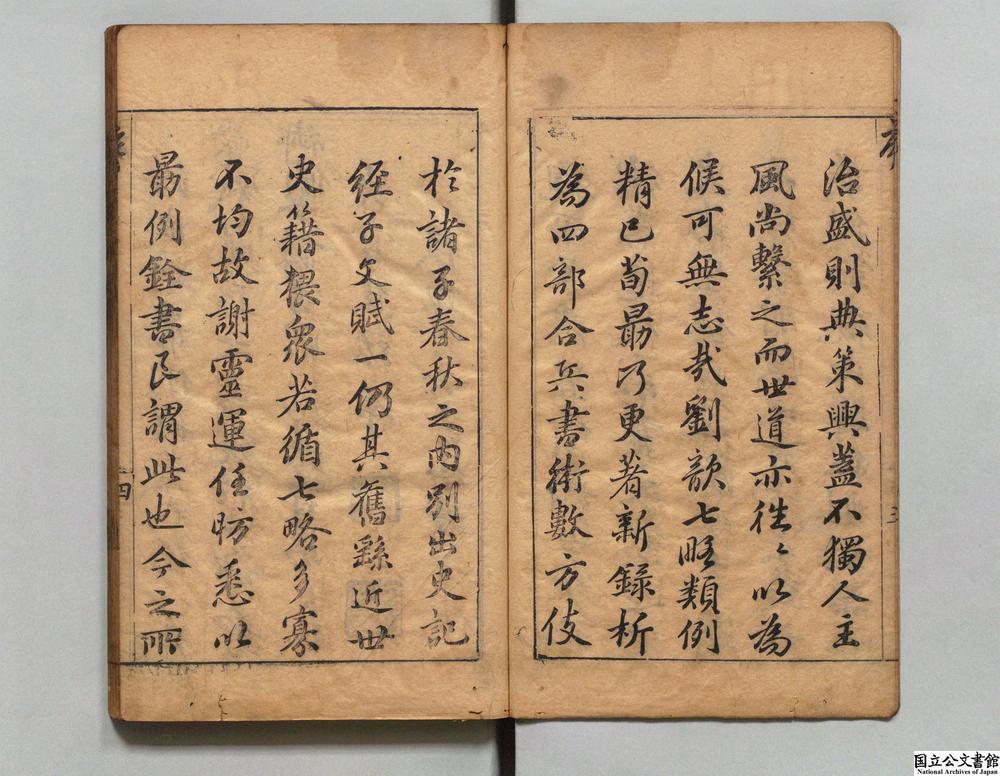 治盛則典策興蓋不獨人主
風尚繫之而世道亦徃〻以為
候可無志哉劉歆七略類例
精已荀勗乃更著新錄析
為四部合兵書術數方伎
於諸子春秋之內別出史記
經子文賦一仍其舊繇近世
史籍猥衆若循七略多寡
不均故謝靈運任昉悉以
勗例銓書良謂此也今之所
四
国立公文書館
National Archives of Japan